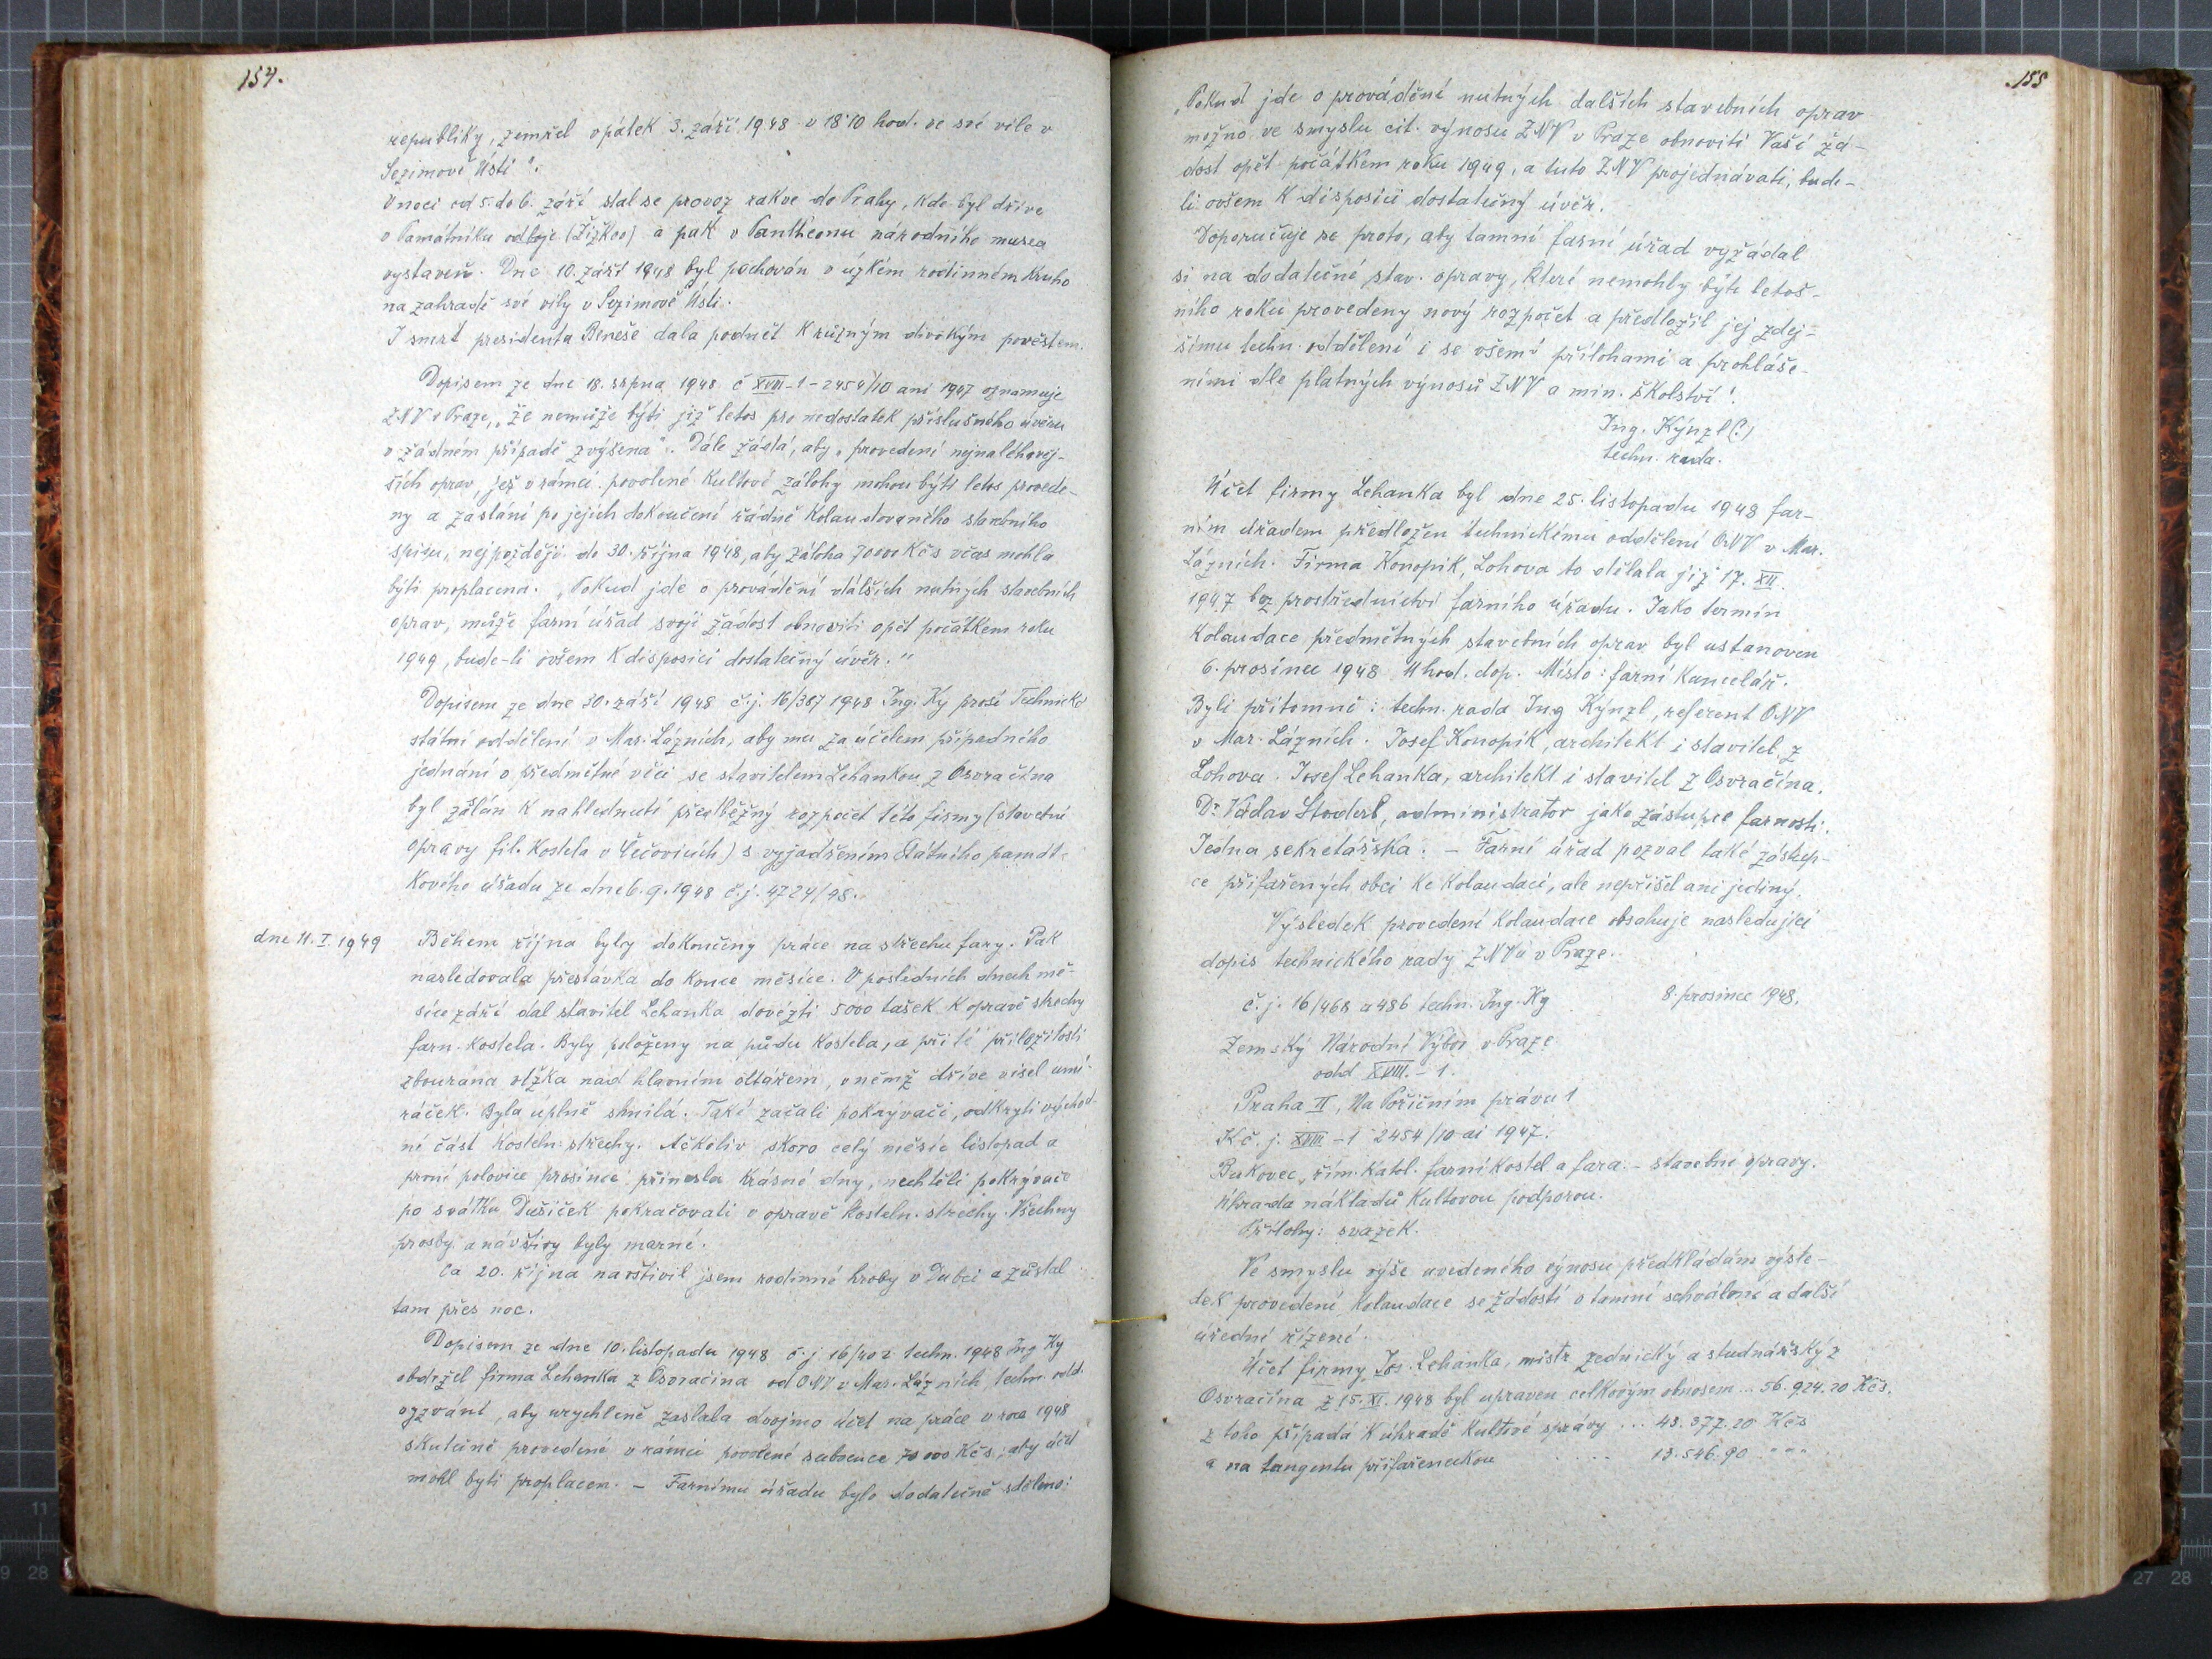 154.
republiky, zemřel v pátek 3. září 1948 v 18˙10 hod. ve své vile v
Sezimově Ústí".
V noci od 5. do 6. září stal se provoz rakve do Prahy, kde byl dříve
v Památníku odboje (Žižkov) a pak v Pantheonu národního musea
vystaven. Dne 10. září 1948 byl pochován v úzkém rodinném kruhu
na zahradě své vily v Sezimově Ústí.
I smrt presidenta Beneše dala podnět k různým divokým pověstem.
Dopisem ze dne 18. srpna 1948 č XVIII-1-2454/10 ani 1947 oznamuje
ZNV v Praze, „že nemůže býti již letos pro nedostatek příslušného úvěru
v žádném případě zvýšena". Dále žádá, aby „provedení nejnaléhavěj-
ších oprav, jež v rámci povolené kultové zálohy mohou býti letos provede-
ny a zaslání po jejich dokončení řádně kolaudovaného stavebního
spisu, nejpozději do 30. října 1948, aby záloha 70000 Kčs včas mohla
býti proplacena. „Pokud jde o provádění dalších nutných stavebních
oprav, může farní úřad svoji žádost obnoviti opět počátkem roku
1949, bude-li ovšem k disposici dostatečný úvěr."
Dopisem ze dne 30. září 1948 č.j. 16/387 1948 Ing. Ky prosí Technické
státní oddělení v Mar. Lázních, aby mu za účelem případného
jednání o předmětné věci se stavitelem Lehankou z Osvračína
byl zaslán k nahlednutí předběžný rozpočet této firmy (stavební
opravy fil. kostela v Čečovicích) s vyjadřením Státního památ-
kového úřadu ze dne 6.9.1948 č.j. 4724/48.
dne 11. I. 1949 Během října byly dokončeny práce na střechu fary. Pak
nasledovala přestavka do konce měsíce. V posledních dnech mě-
síce září dal stavitel Lehanka dovézti 5000 tašek k opravě střechy
farn. kostela. Byly položeny na půdu kostela, a při té příležitosti
zbourana věžka nad hlavním oltářem, v němž dříve visel umí-
ráček. Byla úplně shnilá. Také začali pokrývači, odkryli východ-
ní část kosteln. střechy. Ačkoliv skoro celý měsíc listopad a
první polovice prosince přinesla krásné dny, nechtěli pokrývači
po svátku Dušiček pokračovati v opravě kosteln. střechy. Všechny
prosby a návštivy byly marné.
Ca 20. října navštivil jsem rodinné hroby v Dubci a zůstal
tam přes noc.
Dopisem ze dne 10. listopadu 1948 č. j 16/402 techn. 1948 Ing Ky
obdržel firma Lehanka z Osvračina od ONV v Mar. Lázních, techn. odd.
vyzvání, aby urychleně zaslala dvojmo účet na práce v roce 1948
skutečně provedené v rámci povolené subvence 70 000 Kčs, aby účet
mohl byti proplacen. – Farnímu úřadu bylo dodatečně sděleno:
155
„Pokud jde o provádění nutných dalších stavebních oprav
možno ve smyslu cit. výnosu ZNV v Praze obnoviti Vaší žá-
dost opět počátkem roku 1949, a tuto ZNV projednávati, bude-
li ovšem k disposici dostatečný úvěr.
Doporučuje se proto, aby tamní farní úřad vyžádal
si na dodatečné stav. opravy, které nemohly býti letoš-
ního roku provedeny nový rozpočet a předložil jej zdej-
šímu techn. oddělení i se všemi přílohami a prohláše-
ními dle platných výnosů ZNV a min. školství".
Ing. Kýnzl (?)
techn. rada.
Účet firmy Lehanka byl dne 25. listopadu 1948 far-
ním úřadem předložen technickému oddělení ONV v Mar.
Lázních. Firma Konopik, Lohova to dělala již 17. XII.
1947 bez prostřednictví farního úřadu. Jako termin
kolaudace předmětných stavebních oprav byl ustanoven
6. prosince 1948 11 hod. dop. Místo: farní kancelář.
Byli přítomně: techn. rada Ing Kýnzl, referent ONV
v Mar. Lázních. Josef Konopik, architekt i stavitel z
Lohova. Josef Lehanka, architekt i stavitel z Osvračína.
Dr. Václav Štoderl, administrátor jako zástupce farnosti.
Jedna sekretářska. – Farní úřad pozval také zástup-
ce přifařených obcí ke kolaudaci, ale nepřišel ani jediný.
Výsledek provedení kolaudace obsahuje nasledující
dopis technického rady ZNVu v Praze.
č. j. 16/468 a 486 techn. Ing. Ky 8. prosince 1948.
Zemský Národní Výbor v Praze
odd XVIII. – 1.
Praha II, Na Poříčním právu 1
K č. j. XVIII – 1 2454/10 ai 1947.
Bukovec, řím. katol. farní kostel a fara – stavební opravy.
Úhrada nákladů kultovou podporou.
Přílohy: svazek.
Ve smyslu výše uvedeného výnosu předkládám výsle-
dek provedení kolaudace se žádostí o tamní schválení a další
úřední řízení.
Účet firmy Jos. Lehanka, mistr zednický a studnářský z
Osvračína z 15. XI. 1948 byl upraven celkovým obnosem .. 56.924.20 Kčs.
z toho případá k úhradě kultové správy ... 43.377.20 Kčs
a na tangentu přifařeneckou .... 13.546.90 " " "